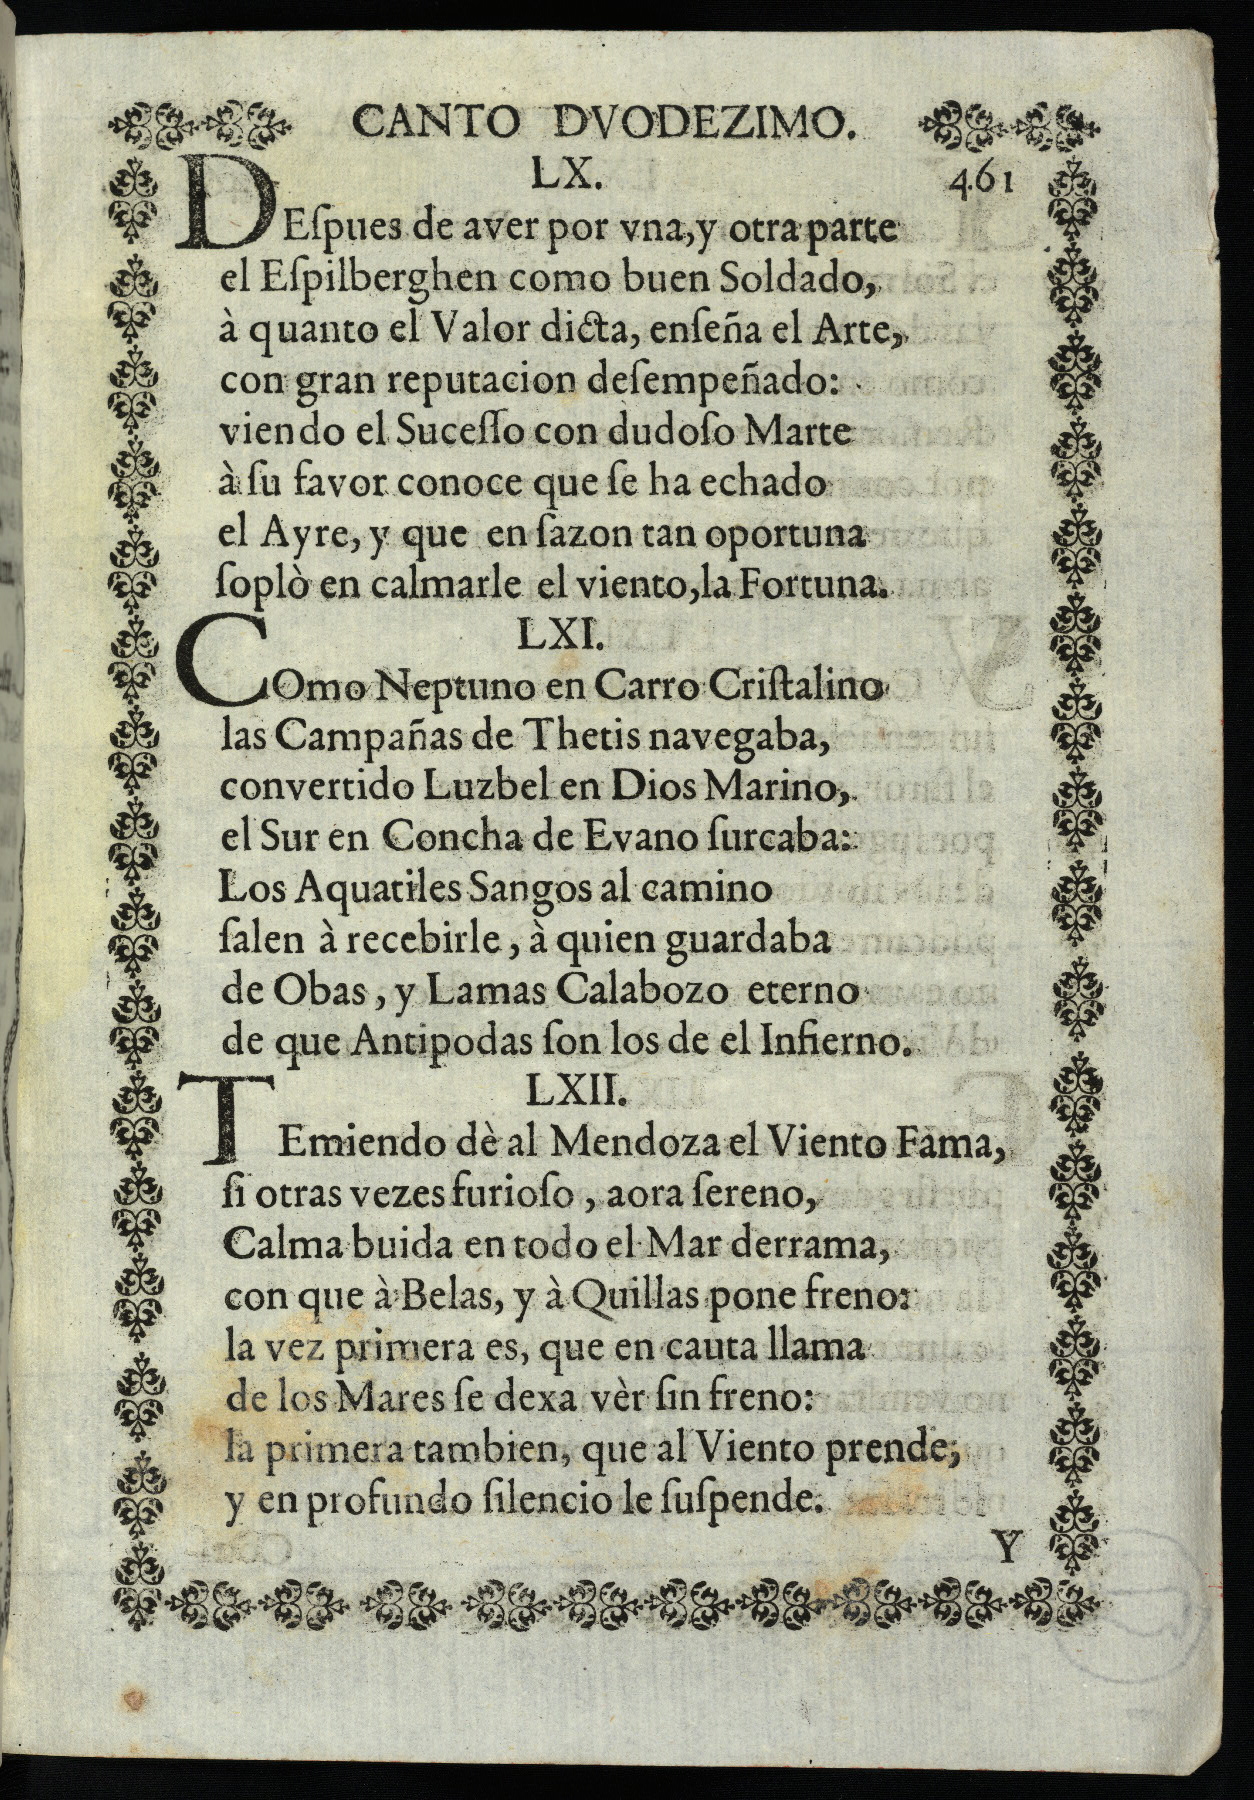 CANTO DVODEZIMO.
LX. 461
DEſpues de aver por vna,y otra parte
el Eſpilberghen como buen Soldado,
à quanto el Valor dicta, enſeña el Arte,
con gran reputacion deſempeñado:
viendo el Suceſſo con dudoſo Marte
à ſu favor conoce que ſe ha echado
el Ayre, y que en ſazon tan oportuna
ſoplò en calmarle el viento,la Fortuna.
LXI.
COmo Neptuno en Carro Criſtalino
las Campañas de Thetis navegaba,
convertido Luzbel en Dios Marino,
el Sur en Concha de Evano ſurcaba:
Los Aquatiles Sangos al camino
ſalen à recebirle, à quien guardaba
de Obas, y Lamas Calabozo eterno
de que Antipodas ſon los de el Infierno.
LXII.
TEmiendo dè al Mendoza el Viento Fama,
ſi otras vezes furioſo, aora ſereno,
Calma buida en todo el Mar derrama,
con que à Belas, y à Quillas pone freno:
la vez primera es, que en cauta llama
de los Mares ſe dexa vèr ſin freno:
la primera tambien, que al Viento prende;
y en profundo ſilencio le ſuſpende.
Y